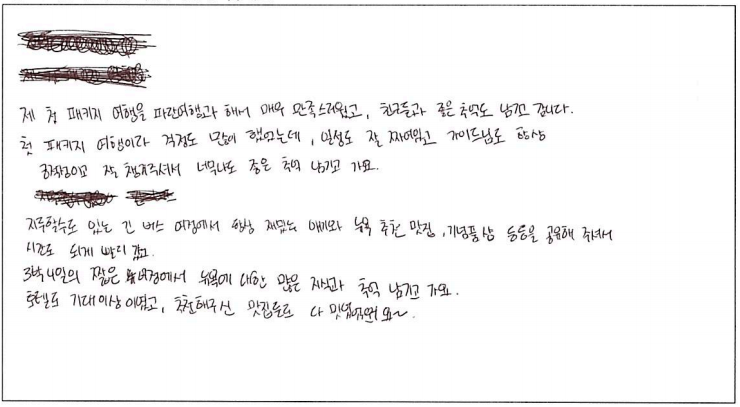 제 첫 패키지 여행을 파란여행과 해서 매우 만족스러웠고, 친구들과 좋은 추억도 남기고 갑니다.
첫 패키지 여행이라 걱정도 많이 했었는데, 일정도 잘 짜여있고 가이드님도 항상
잘 챙겨주셔서 너무나도 좋은 추억 남기고 가요.
지루할수도 있는 긴 버스 여정에서 항상 재밌는 얘기와 뉴욕 추천 맛집, 기념품샵 등등을 공유해 주셔서
시간도 되게 빨리 갔고.
3박4일의 짧은 여정에서 뉴욕에 대한 많은 지식과 추억 남기고 가요.
호텔도 기대이상이였고, 추천해주신 맛집들도 다 맛있었어요~